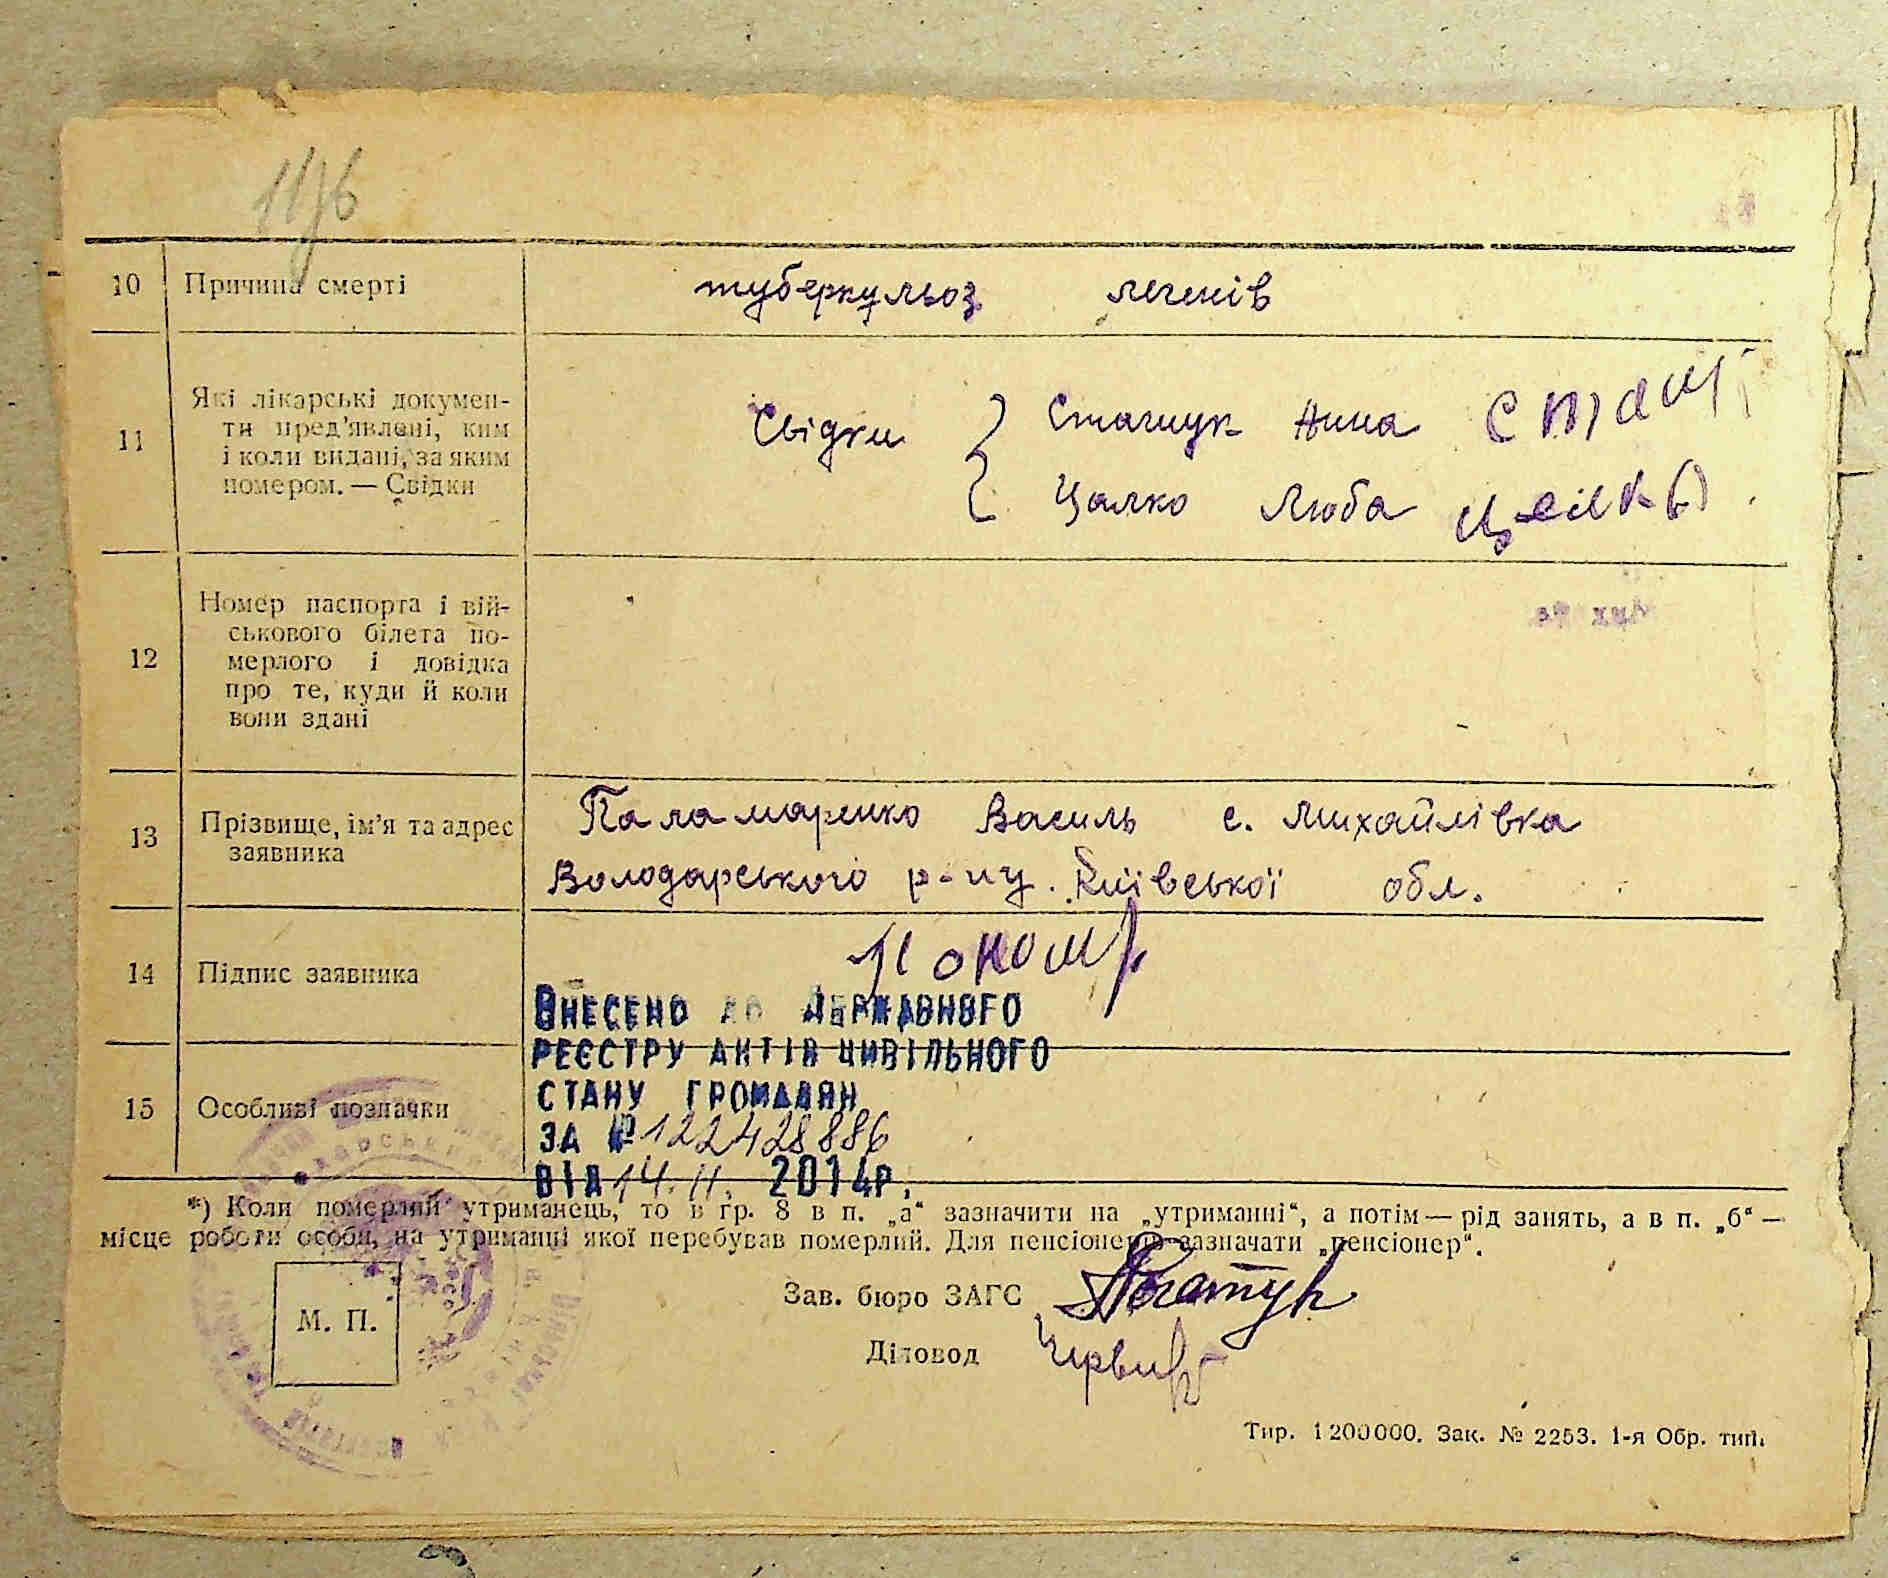 1176
10 Причина смерті туберкульоз легенів
11 Які лікарські докумен-
ти пред'явлені, ким
і коли видані, за яким
номером. — Свідки
Свідки { Сташук Нина
Цалко Люба
12 Номер паспорта і вій-
ськового білета по-
мерлого і довідка
про те, куди й коли
вони здані
13 Прізвище, ім'я та адрес
заявника
Паламаренко Василь с. Михайлівка
Володарського р-ну. Київської обл.
14 Підпис заявника
15 Особливі позначки
ВНЕСЕНО ДО ДЕРЖАВНОГО
РЕЄСТРУ АКТІВ ЦИВІЛЬНОГО
СТАНУ ГРОМАДЯН
ЗА № 122428886
ВІД 14.11. 2014р.
*) Коли померлий утриманець, то в гр. 8 в п. „а“ зазначити на „утриманні“, а потім — рід занять, а в п. „б“ —
місце роботи особи, на утриманні якої перебував померлий. Для пенсіонерів зазначати „пенсіонер“.
М. П.
Зав. бюро ЗАГС
Діловод
Тир. 1200000. Зак. № 2253. 1-я Обр. тип.